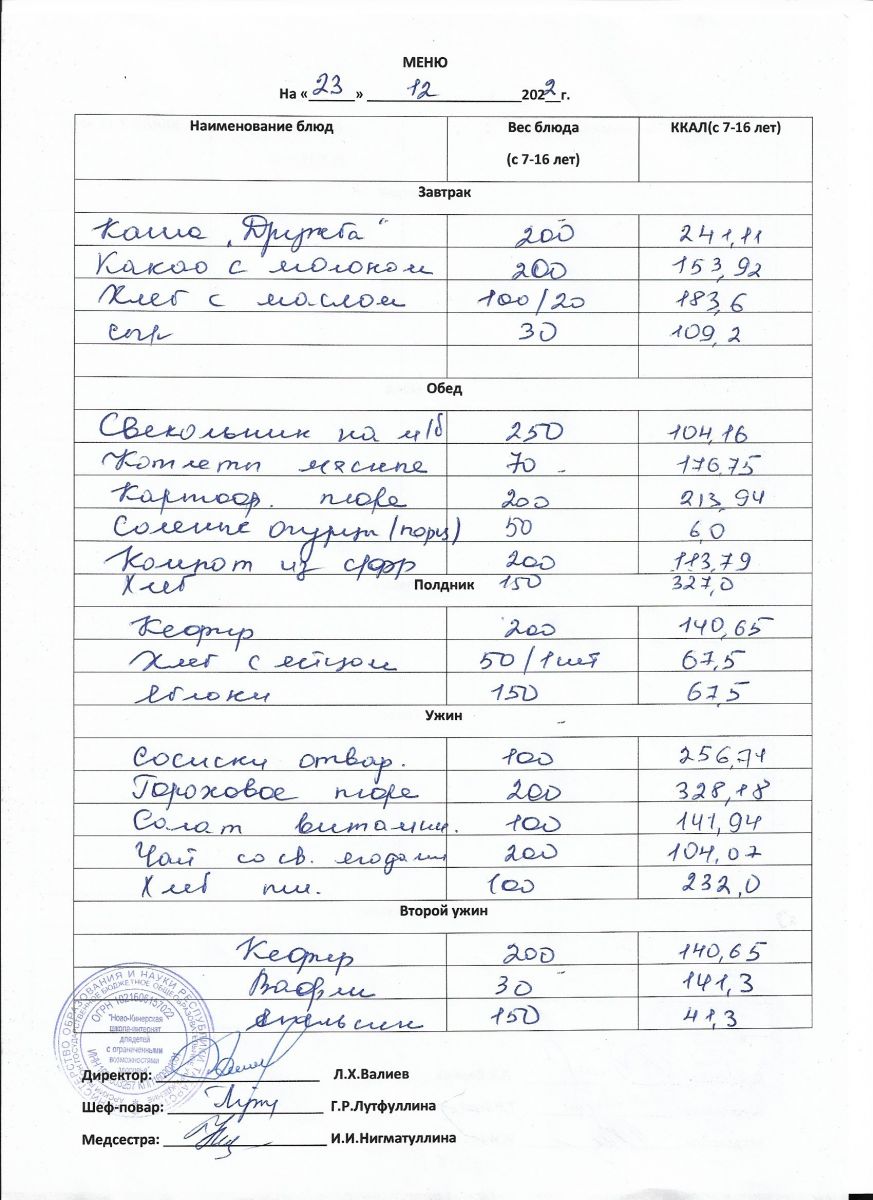 МЕНЮ
На «23» 12 2022 г.
Наименование блюд Вес блюда (с 7-16 лет) ККАЛ(с 7-16 лет)
Завтрак
Каша „Дружба“ 200 241,11
Какао с молоком 200 153,92
Хлеб с маслом 100/20 183,6
сыр 30 109,2
Обед
Свекольник на м/б 250 104,16
Котлеты мясные 70 176,75
Картоф. пюре 200 213,94
Соленые огурцы (порц) 50 6,0
Компот из с/фр 200 113,79
Хлеб 150 327,0
Полдник
Кефир 200 140,65
Хлеб с яйцом 50/1шт 67,5
Яблоки 150 67,5
Ужин
Сосиски отвар. 100 256,71
Гороховое пюре 200 328,18
Салат витамин. 100 141,94
Чай со св. ягодами 200 104,07
Хлеб пш. 100 232,0
Второй ужин
Кефир 200 140,65
Вафли 30 141,3
Апельсин 150 41,3
ОГРН 1021606157022
"Ново-Кинерская
школа-интернат
для детей
с ограниченными
возможностями
здоровья"
Директор: Л.Х.Валиев
Шеф-повар: Г.Р.Лутфуллина
Медсестра: И.И.Нигматуллина